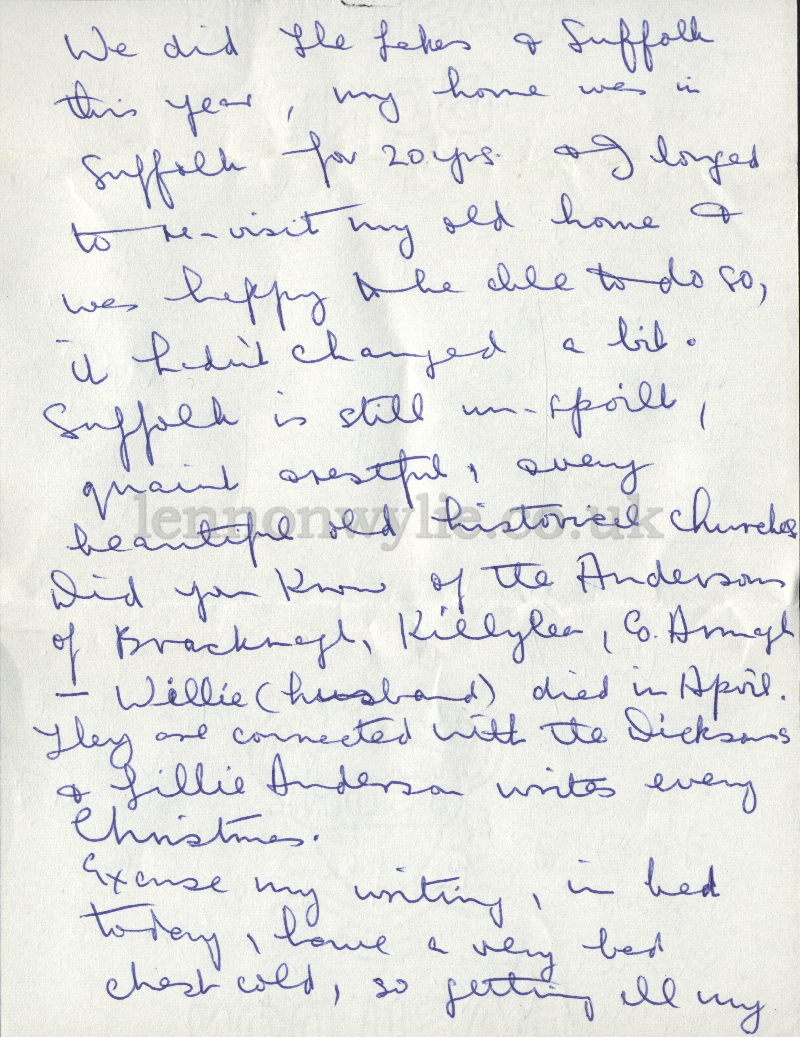 We did the Lakes & Suffolk
this year, my home was in
Suffolk for 20 yrs. & I longed
to re-visit my old home &
was happy to be able to do so,
it hadn't changed a bit.
Suffolk is still un-spoilt,
quaint & restful, & very
lennonwylie.co.uk
beautiful old historical churches
Did you know of the Andersons
of Bracknagh, Killylea, Co. Armagh
— Willie (husband) died in April.
They are connected with the Dicksons
& Lillie Anderson writes every
Christmas.
Excuse my writing, in bed
today, have a very bad
chest cold, so getting all my